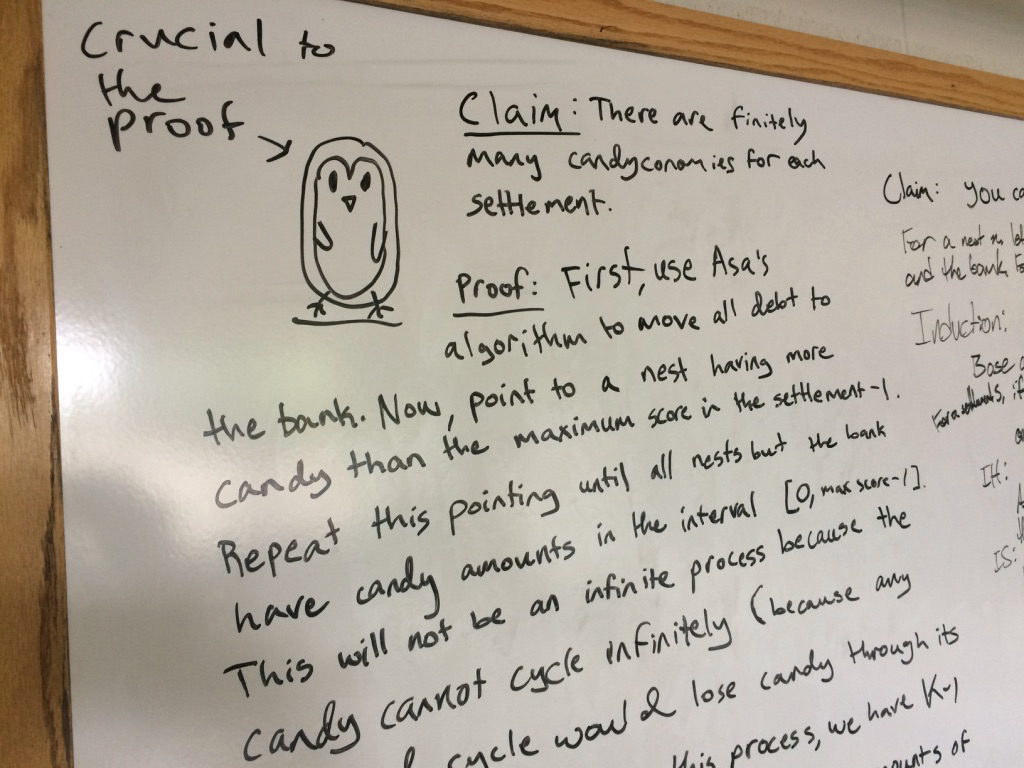 Crucial to
the
proof
Claim: There are finitely
many candyconomies for each
settlement.
Proof: First, use Asa's
algorithm to move all debt to
the bank. Now, point to a nest having more
candy than the maximum score in the settlement-1.
Repeat this pointing until all nests but the bank
have candy amounts in the interval [0, max score-1].
This will not be an infinite process because the
candy cannot cycle infinitely (because any
cycle would lose candy through its
this process, we have K-1
amounts of
Claim: You
For a nest
and the bank.
Induction:
Base
For
IH:
IS: